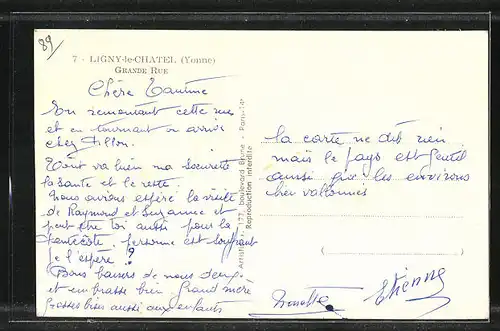 89
7 - LIGNY-le-CHATEL (Yonne)
GRANDE RUE
Chère Tantine
En remontant cette rue
et en tournant on arrive
chez Dillon.
Tout va bien ma
la santé et le reste.
Nous avions espéré la visite
de Raymond et Suzanne et
peut être toi aussi pour la
Pentecôte. personne est souffrant
je l'espère ?
Bons baisers de nous deux
et embrasse bien Grand mère
Grosses bises aussi aux enfants
boulevard Brune - Paris-14e
Reproduction interdite
la carte ne dit rien
mais le pays est gentil
aussi que les environs
bien vallonnés
Etienne